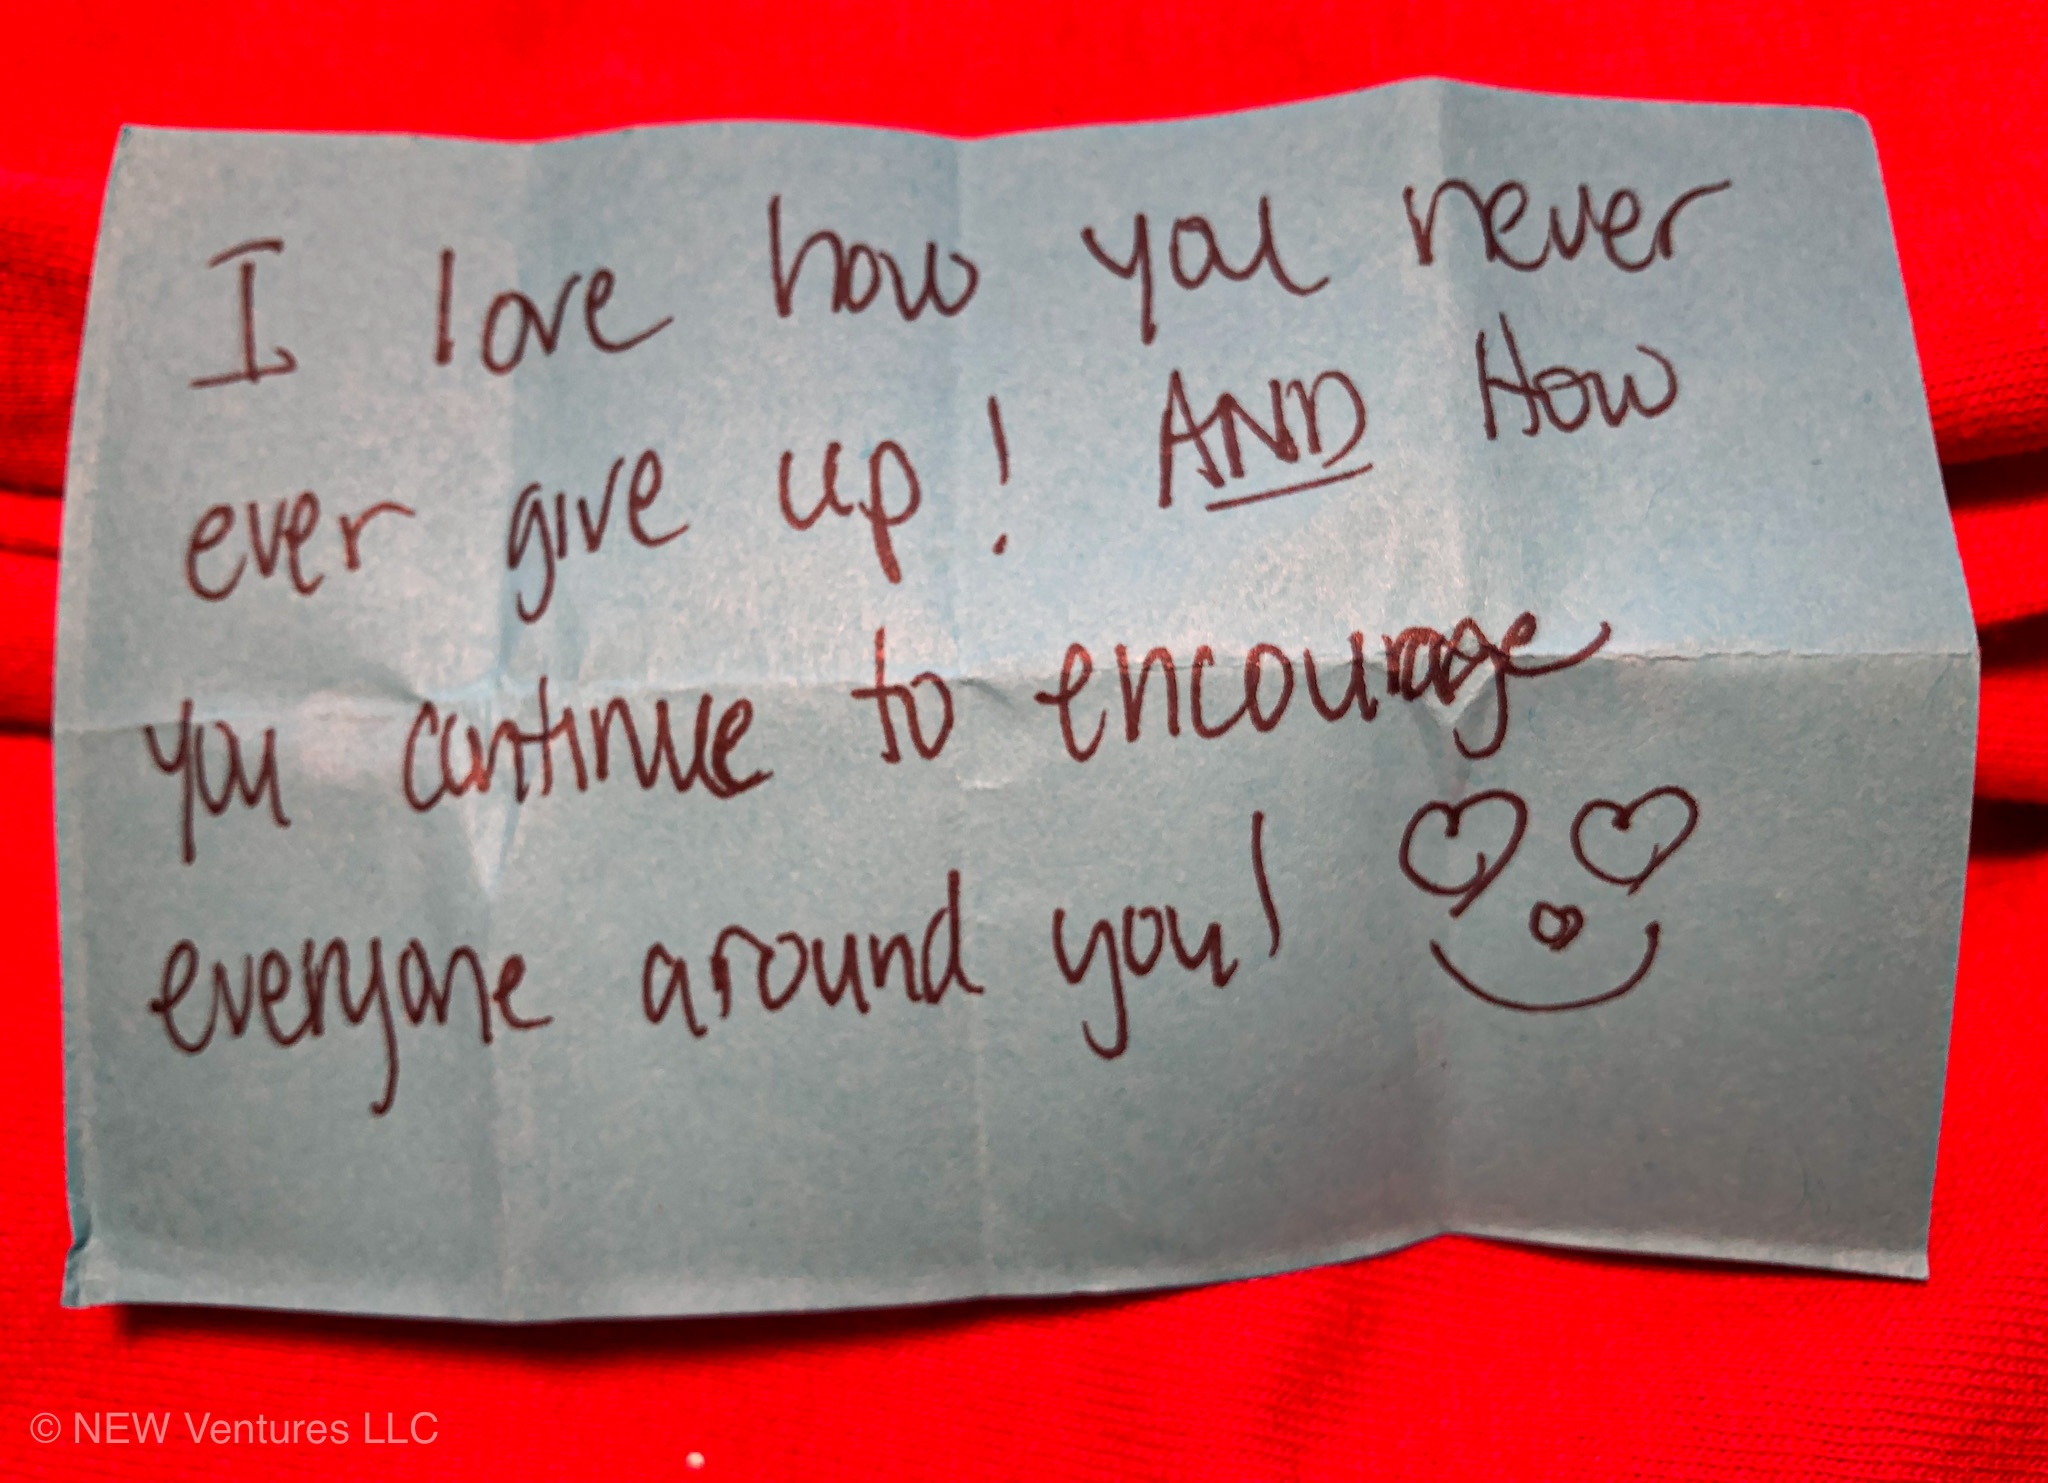 I love how you never
ever give up! AND How
you continue to encourage
everyone around you!
© NEW Ventures LLC